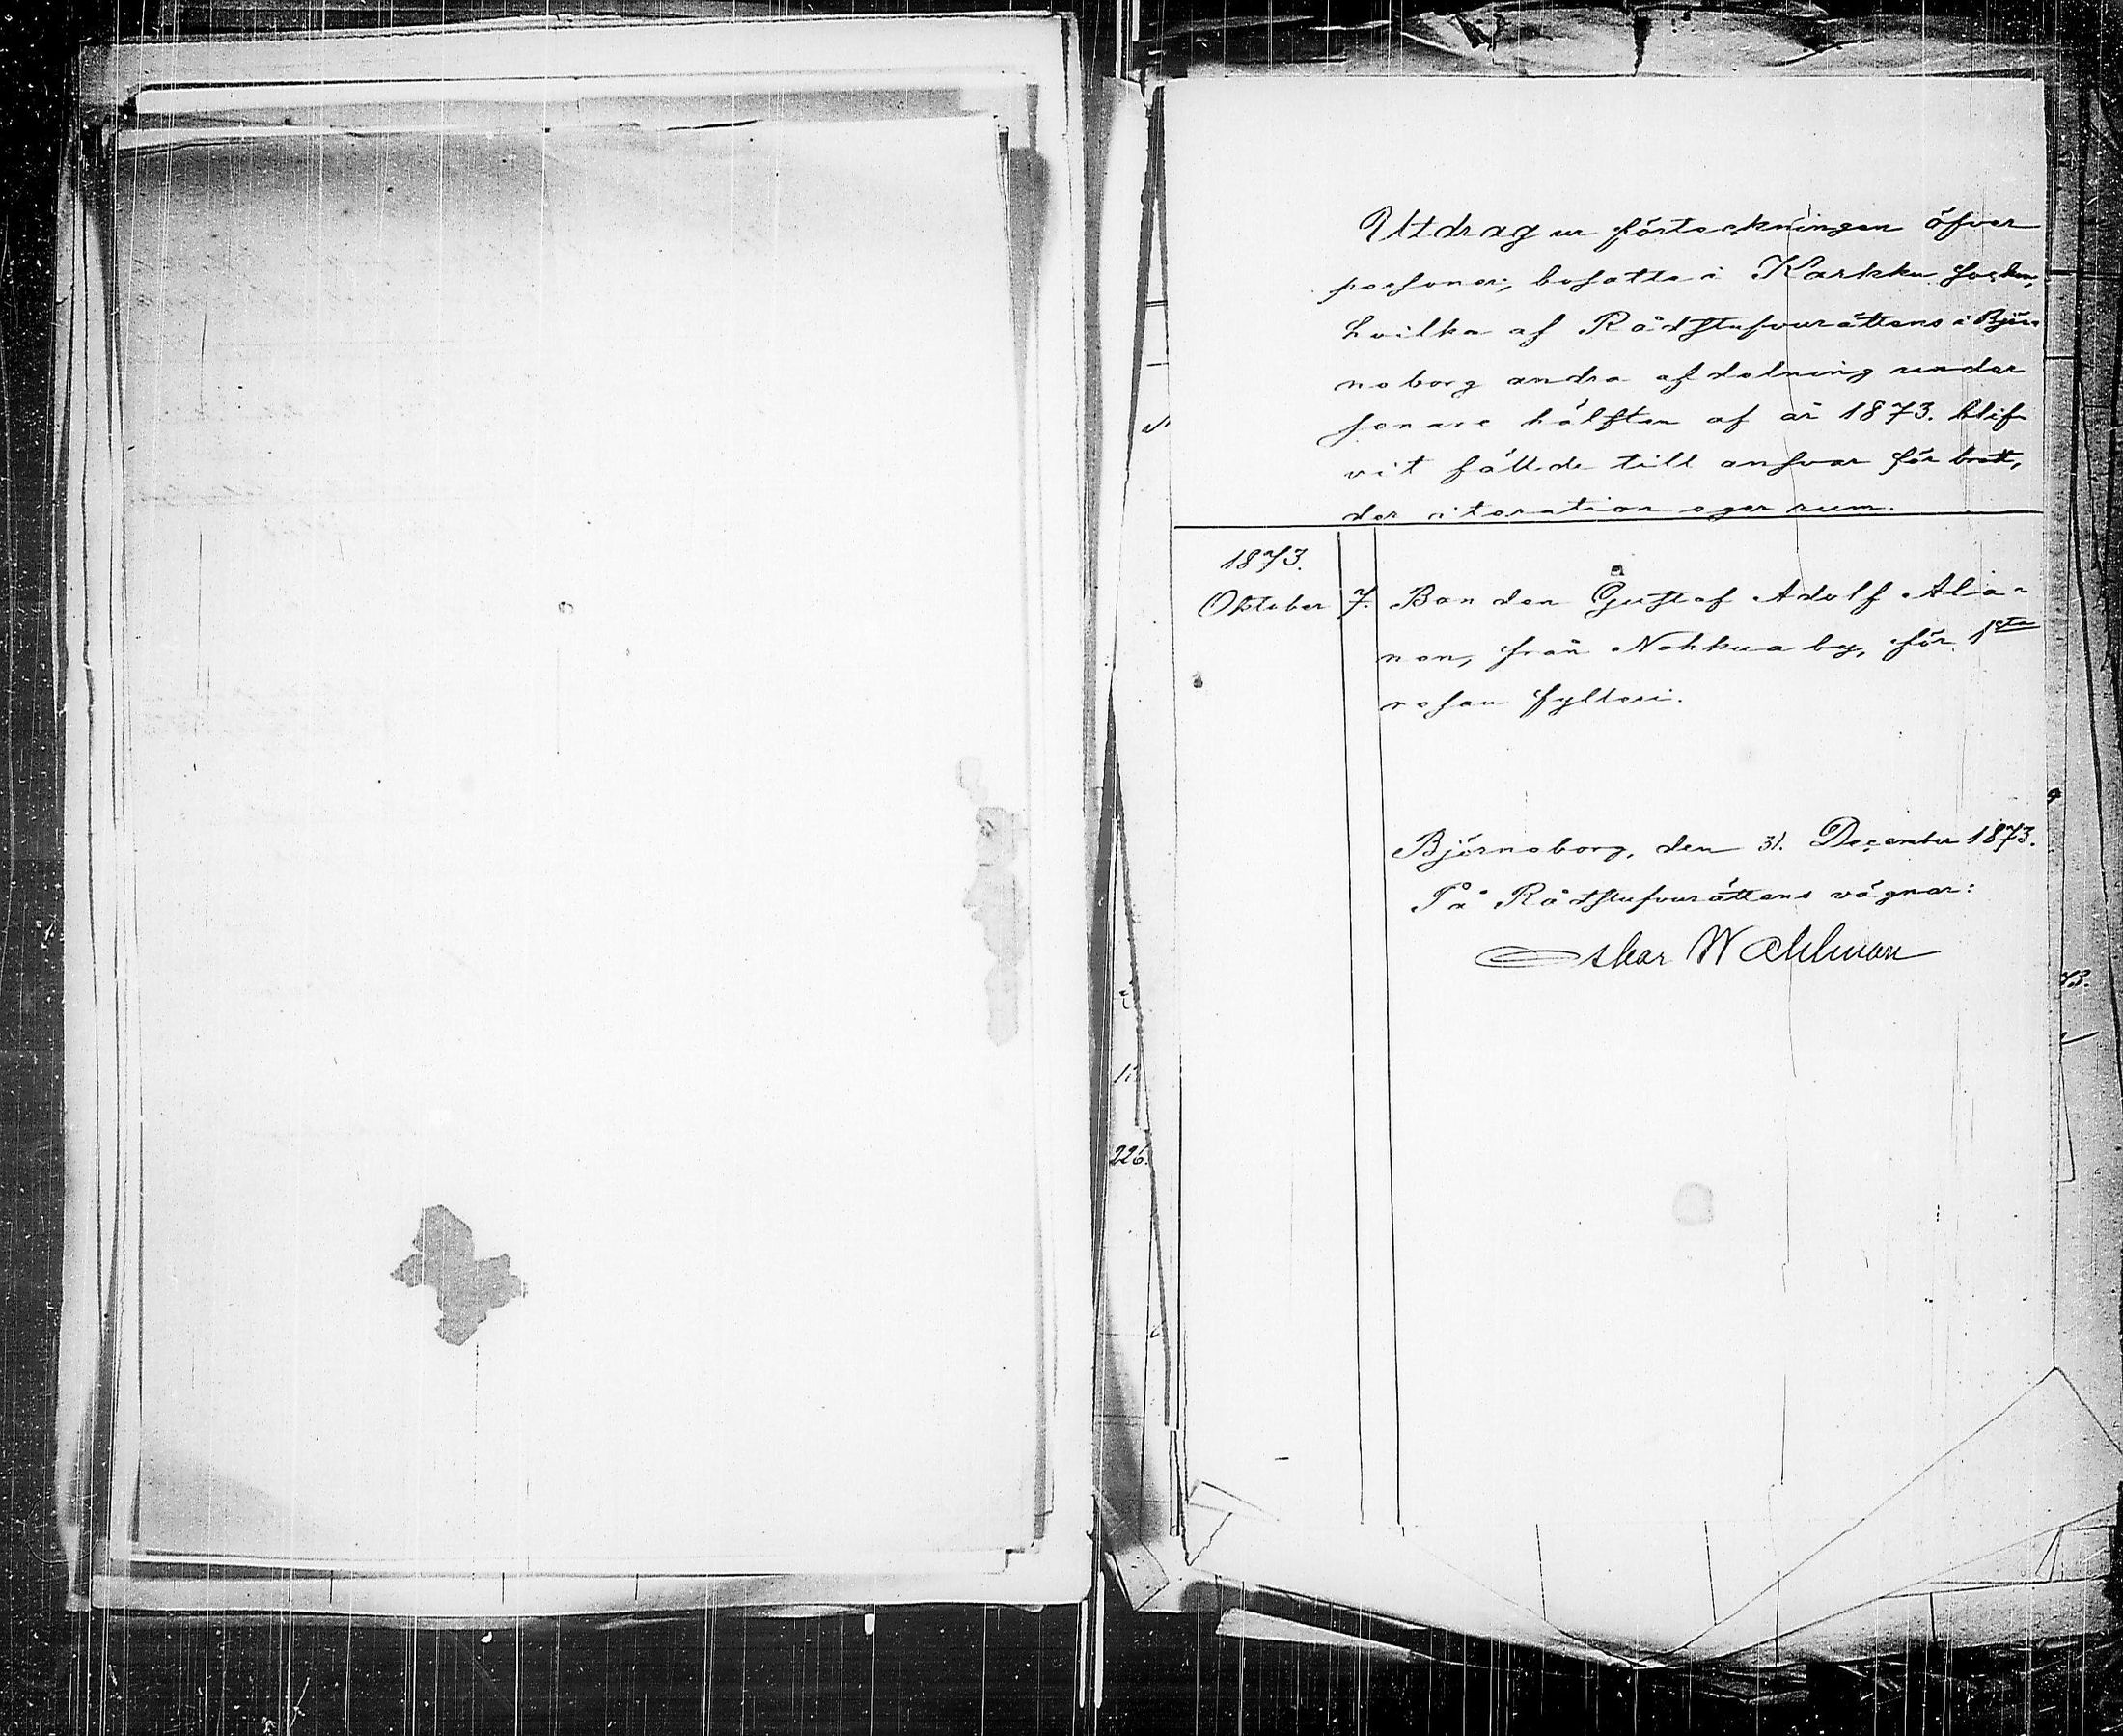 Utdrag ur förteckningen öfver
personer, bosatte i Karkku socken,
hvilka af Rådstufvurättens i Björ-
neborg andra afdelning under
senare hälften af år 1873. blif-
vit fällde till ansvar för brott,
der iteration eger rum.
1873.
Oktober 7. Bonden Gustaf Adolf Ala-
nen, från Nohkua by, för 1sta
resan fylleri.
Björneborg, den 31. December 1873.
På Rådstufvurättens vägnar:
Oskar Wahlman
226.